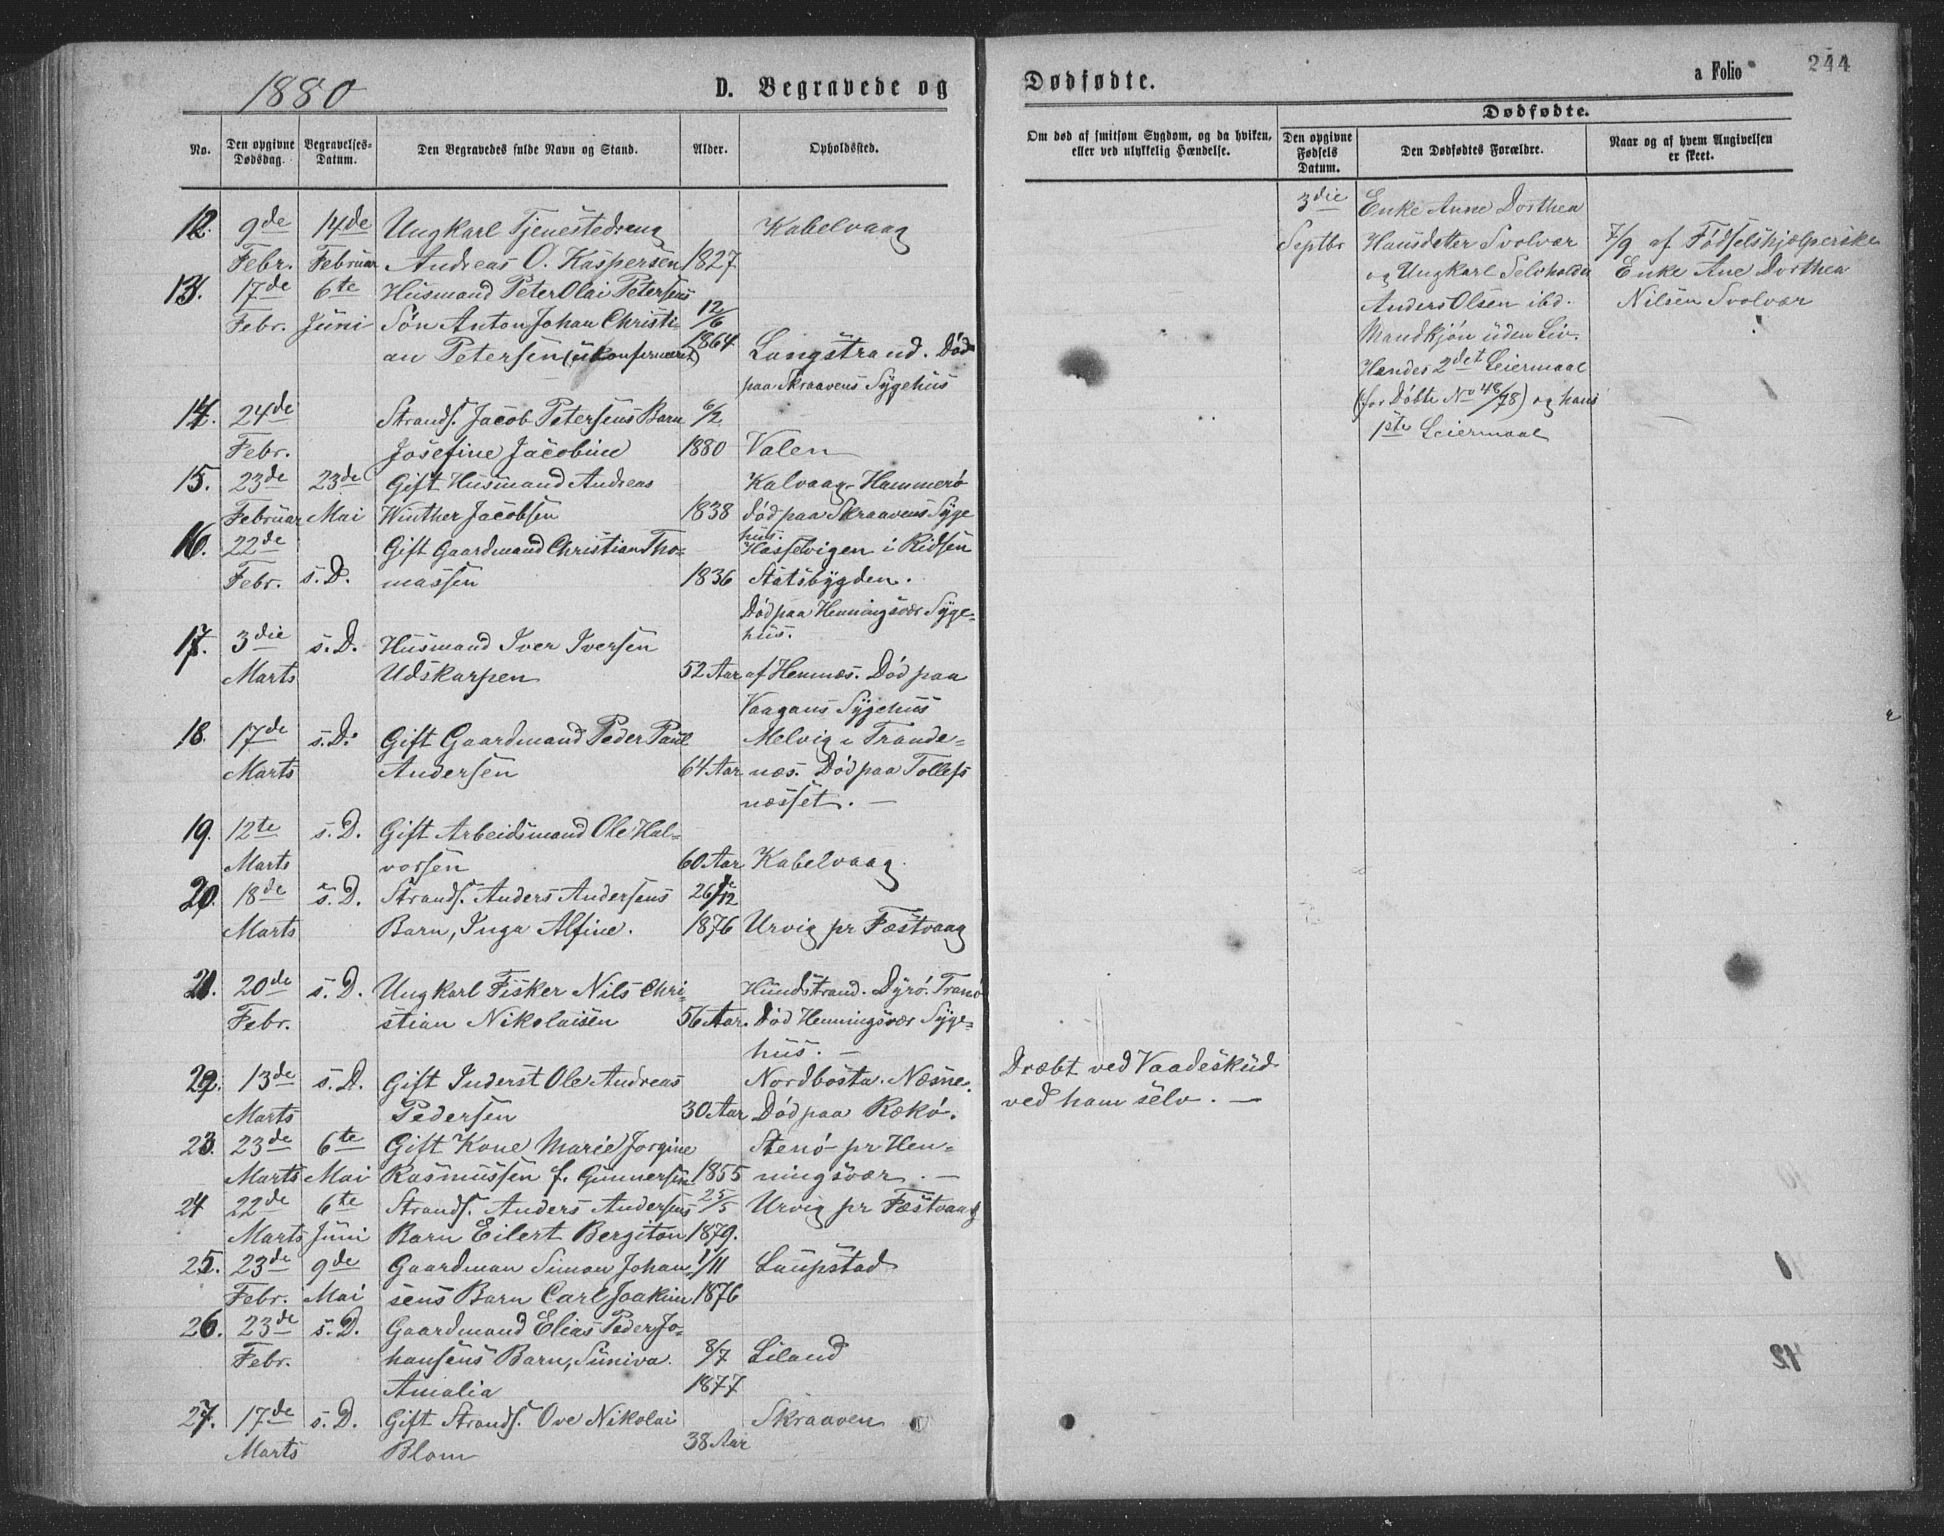 1880
D. Begravede og Dødfødte.
a Folio 244
No.
Den opgivne Dødsdag.
Begravelses-Datum.
Den Begravedes fulde Navn og Stand.
Alder.
Opholdssted.
Om død af smitsom Sygdom, og da hvilken, eller ved ulykkelig Hændelse.
Dødfødte.
Den opgivne Fødsels Datum.
Den Dødfødtes Forældre.
Naar og af hvem Angivelsen er skeet.
12. 9de 14de Ungkarl Tjenestedreng Kabelvaag
Febr. Februar Andreas O. Kaspersen 1827
13. 17de 6te Husmand Peter Olai Petersens
Febr. Juni Søn Anton Johan Christi- 12/6
an Petersen (ukonfirmeret) 1864 Langstrand. Død
paa Skraavens Sygehus
14. 24de Strands. Jacob Petersens Barn 6/2
Febr. Josefine Jacobine 1880 Valen
15. 23de 23de Gift Husmand Andreas Kalvaag Hammerø
Februar Mai Winther Jacobsen 1838 død paa Skraavens Syge
hus.
16. 22de Gift Gaardmand Christian Tho- Hasselvigen i Ridsen
Febr. s. D. massen 1836 Statsbygden.
Død paa Henningsvær Syge-
hus.
17. 3die s. D. Husmand Iver Iversen
Marts Udskarpen 52 Aar af Hemnæs. Død paa
Vaagans Sygehus
18. 17de s. D. Gift Gaardmand Peder Paul Melvig i Trande-
Marts Andersen 64 Aar næs. Død paa Tollefs
næsset. —
19. 12te s. D. Gift Arbeidsmand Ole Hal-
Marts vorsen 60 Aar Kabelvaag.
20. 18de s. D. Strands. Anders Andersens 26de/12
Marts Barn, Inga Alfine. 1876 Urvig pr Fæstvaag
21. 20de s. D. Ungkarl Fisker Nils Chri- Hundstrand. Dyrø. Tranø
Febr. stian Nikolaisen 56 Aar. Død Henningsvær Syge-
hus. —
22. 13de s. D. Gift Inderst Ole Andreas Nordbosta. Næsne. Dræbt ved Vaadeskud
Marts Pedersen 30 Aar Død paa Rækø. ved ham selv. —
23. 23de 6te Gift Kone Marie Jorgine Stenø pr Hen-
Marts Mai Rasmussen f. Gunnersen 1855 ningsvær. —
24 22de 6te Strands. Anders Andersens 25/5 Urvig pr Fæstvaag
Marts Juni Barn Eilert Bergiton 1879.
25. 23de 9de Gaardman Simon Johan 1/11 Laupstad
Febr. Mai sens Barn Carl Joakim 1876
26. 23de s. D. Gaardmand Elias Peder Jo-
Febr. hansens Barn, Suniva 8/7 Liland
Amalia 1877
27. 17de s. D. Gift Strands. Ove Nikolai Skraaven
Marts Blom 38 Aar
3die Enke Anne Dorthea
Septbr Hansdatter Svolvær 7/9 af Fødselshjælperske
og Ungkarl Selvholdn Enke Ane Dorthea
Anders Olsen ibd. Nilsen Svolvær
Mandkjøn uden Liv.
Hendes 2det Leiermaal
(for Døbte No 48/78) og hans
1ste Leiermaal